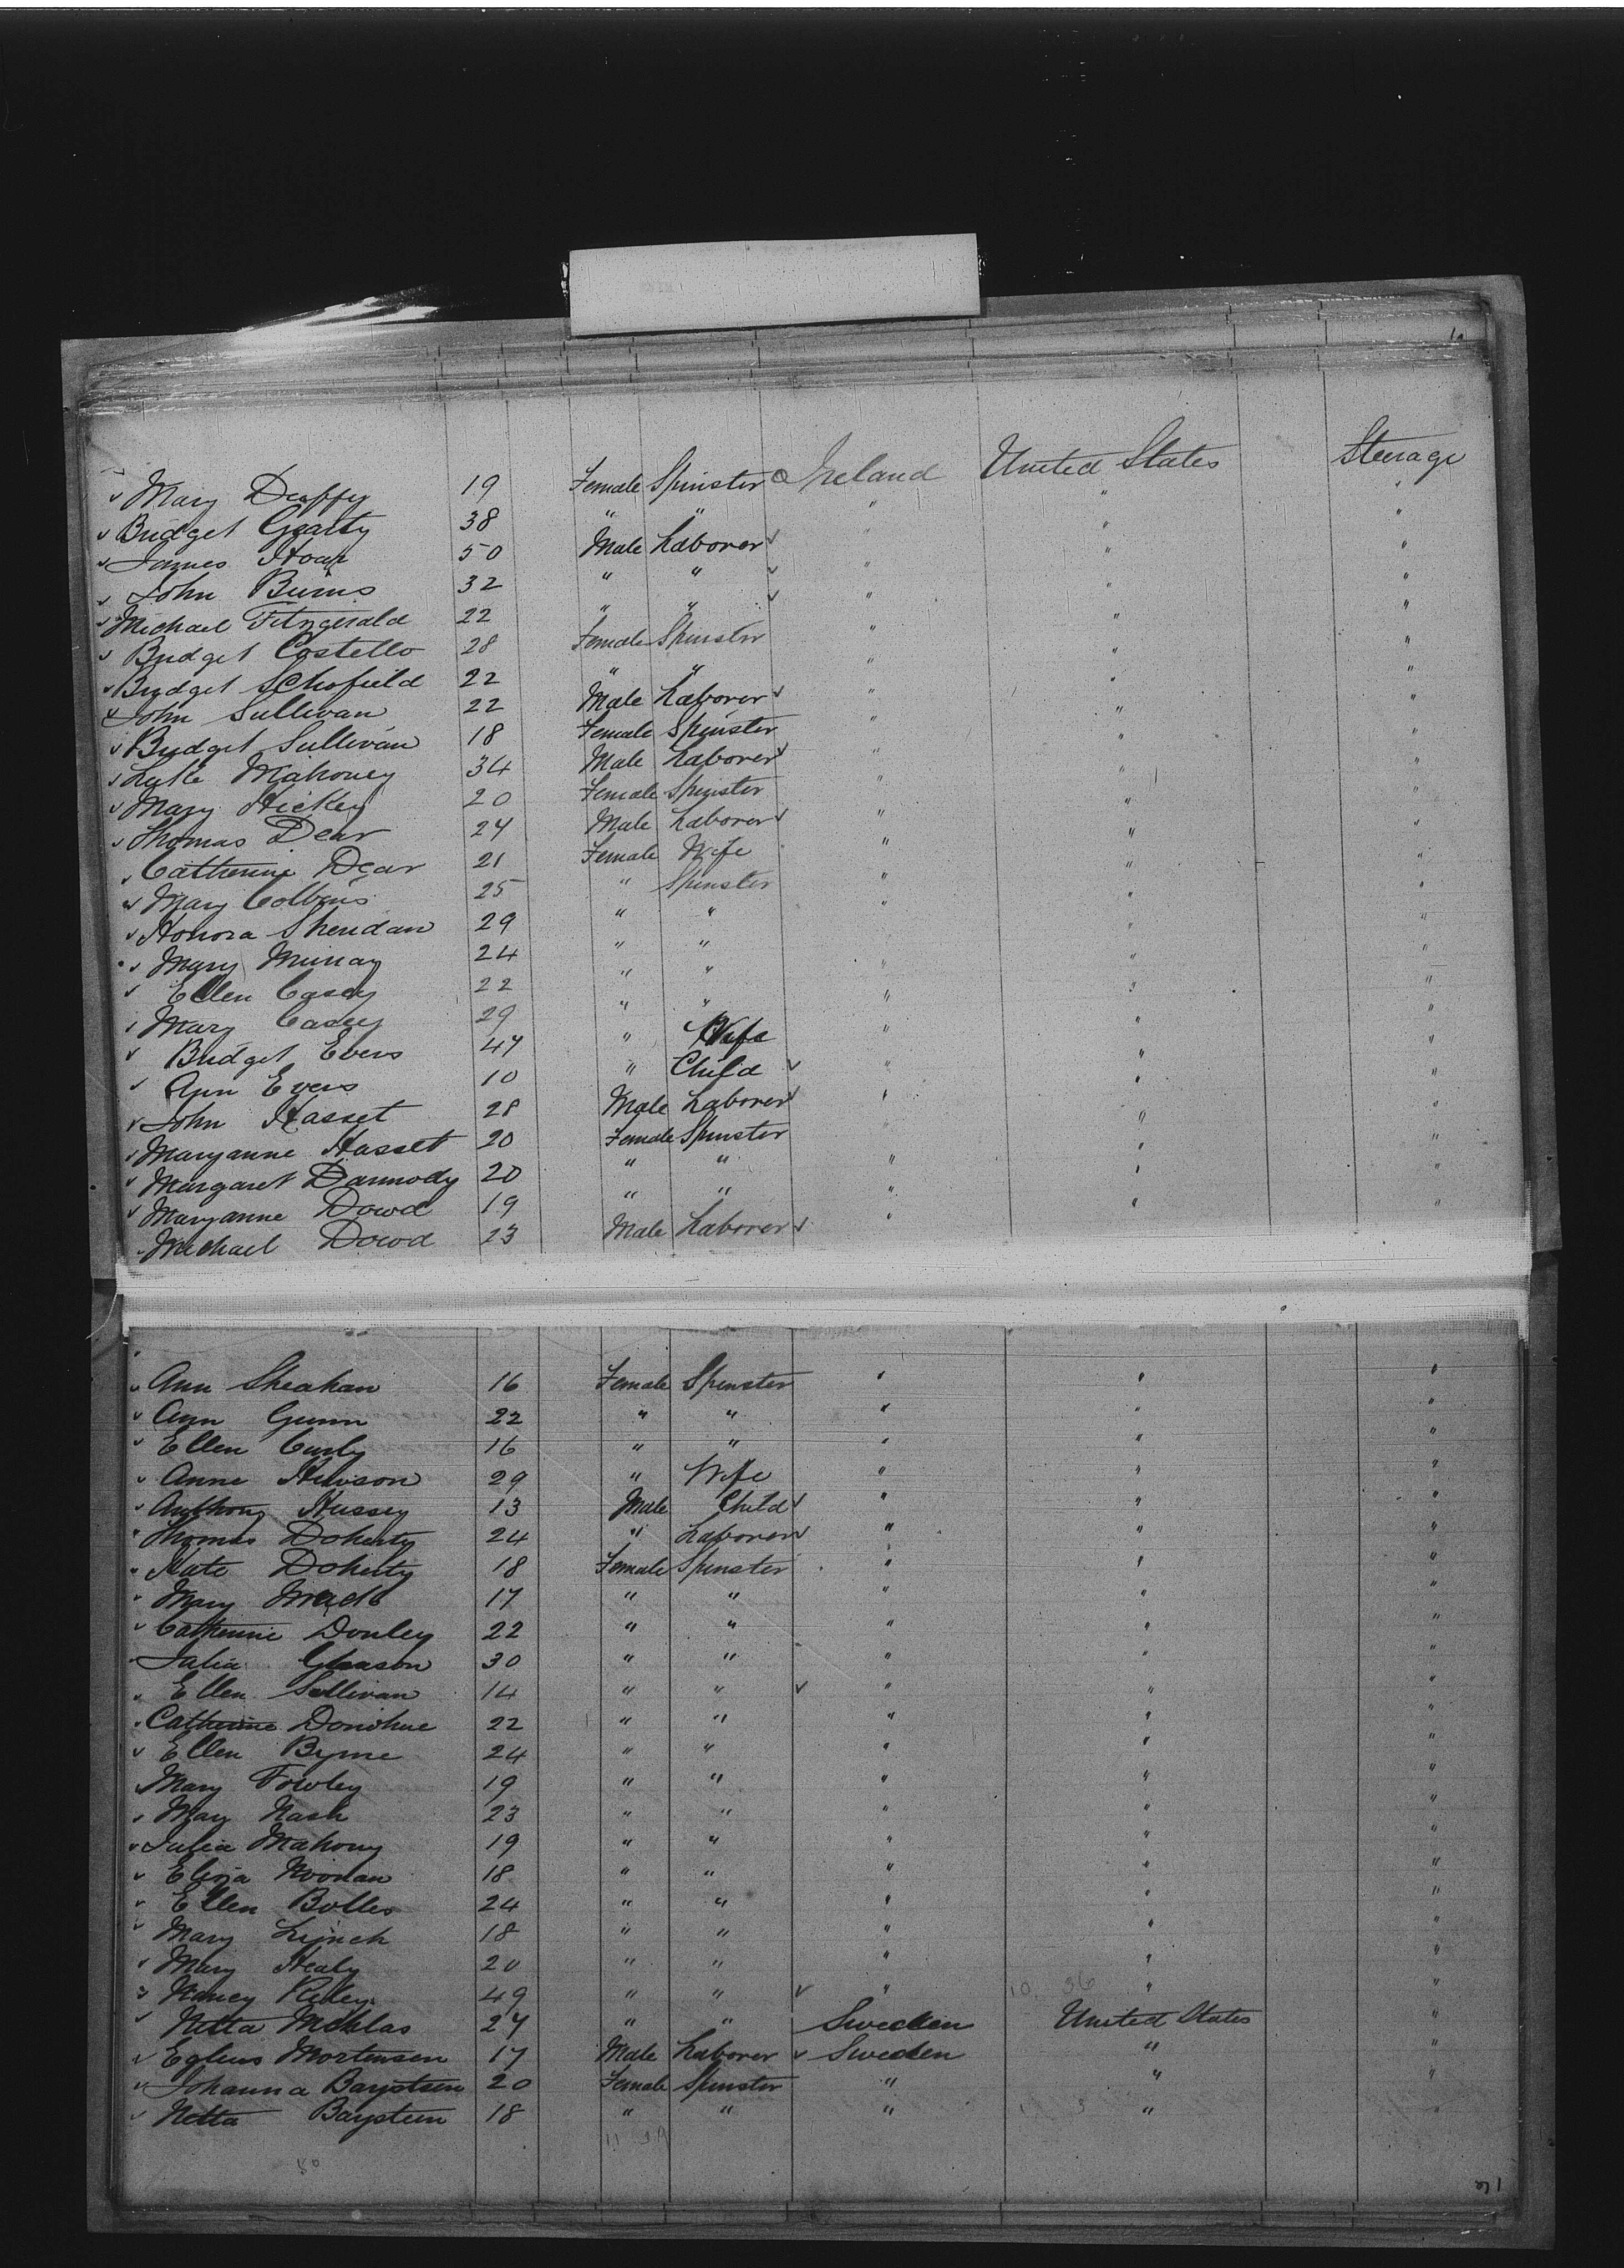 Mary Duffy 19 Female Spinster Ireland United States Steerage
Bridget Gearty 38 " " " " "
James Hoar 50 Male Laborer " "
John Burns 32 " " " " "
Michael Fitzgerald 22 " " " " "
Bridget Costello 28 Female Spinster " " "
Bridget Schofield 22 " " " " "
John Sullivan 22 Male Laborer " " "
Bridget Sullivan 18 Female Spinster " " "
Luke Mahoney 34 Male Laborer " " "
Mary Hickey 20 Female Spinster " " "
Thomas Dear 24 Male Laborer " " "
Catherine Dear 21 Female Wife " " "
Mary Colbins 25 " Spinster " " "
Honora Sheridan 29 " " " " "
Mary Murray 24 " " " " "
Ellen Casey 22 " " " " "
Mary Casey 29 " " " " "
Bridget Evers 47 " Wife " " "
Ann Evers 10 " Child " " "
John Hasset 28 Male Laborer " " "
Maryanne Hasset 20 Female Spinster " " "
Margaret Darmody 20 " " " " "
Maryanne Dowd 19 " " " " "
Michael Dowd 23 Male Laborer " " "
Ann Sheahan 16 Female Spinster " " "
Ann Gunn 22 " " " " "
Ellen Curly 16 " " " " "
Anne Hewson 29 " Wife " " "
Anthony Hussey 13 Male Child " " "
Thomas Doherty 24 " Laborer " " "
Kate Doherty 18 Female Spinster " " "
Mary 17 " " " " "
Catherine Donley 22 " " " " "
Julia Gleason 30 " " " " "
Ellen Sullivan 14 " " " " "
Catherine Donohue 22 " " " " "
Ellen Byrne 24 " " " " "
Mary Fowley 19 " " " " "
Mary Nash 23 " " " " "
Julia Mahony 19 " " " " "
Eliza Noonan 18 " " " " "
Ellen Bolles 24 " " " " "
Mary Lynch 18 " " " " "
Mary Healy 20 " " " " "
Nancy Riley 49 " " " " "
Netta Mcklas 27 " " Sweden United States "
Mortensen 17 Male Laborer Sweden " "
Johanna Baysteen 20 Female Spinster " " "
Netta Baysteen 18 " " " " "
50